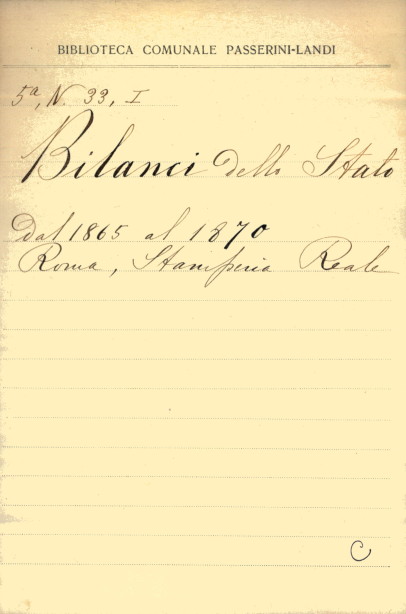 BIBLIOTECA COMUNALE PASSERINI-LANDI
5ª, N. 33, I
Bilanci dello Stato
Dal 1865 al 1870
Roma, Stamperia Reale
C